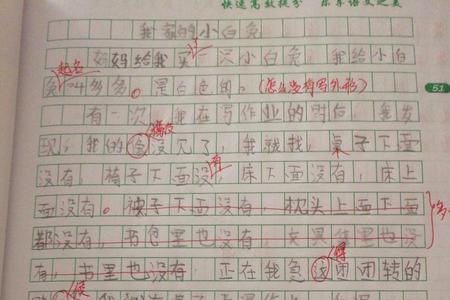 快速高效提分 乐乐语文之美
我家的小白兔
妈妈给我买一只小白兔,我给小白
起名
兔叫多多。是白色的。(怎么没有写外形)
51
有一次,我在写作业的时后,我发
现,我的兔没见了,我就找,桌子下面
没有,椅子下面没有,床下面没有,床上
面没有。被子下面没有,枕头上面下面
都没有,书包里也没有,文具盒里也没
有,书里也没有,正在我急的团团转的
得
候